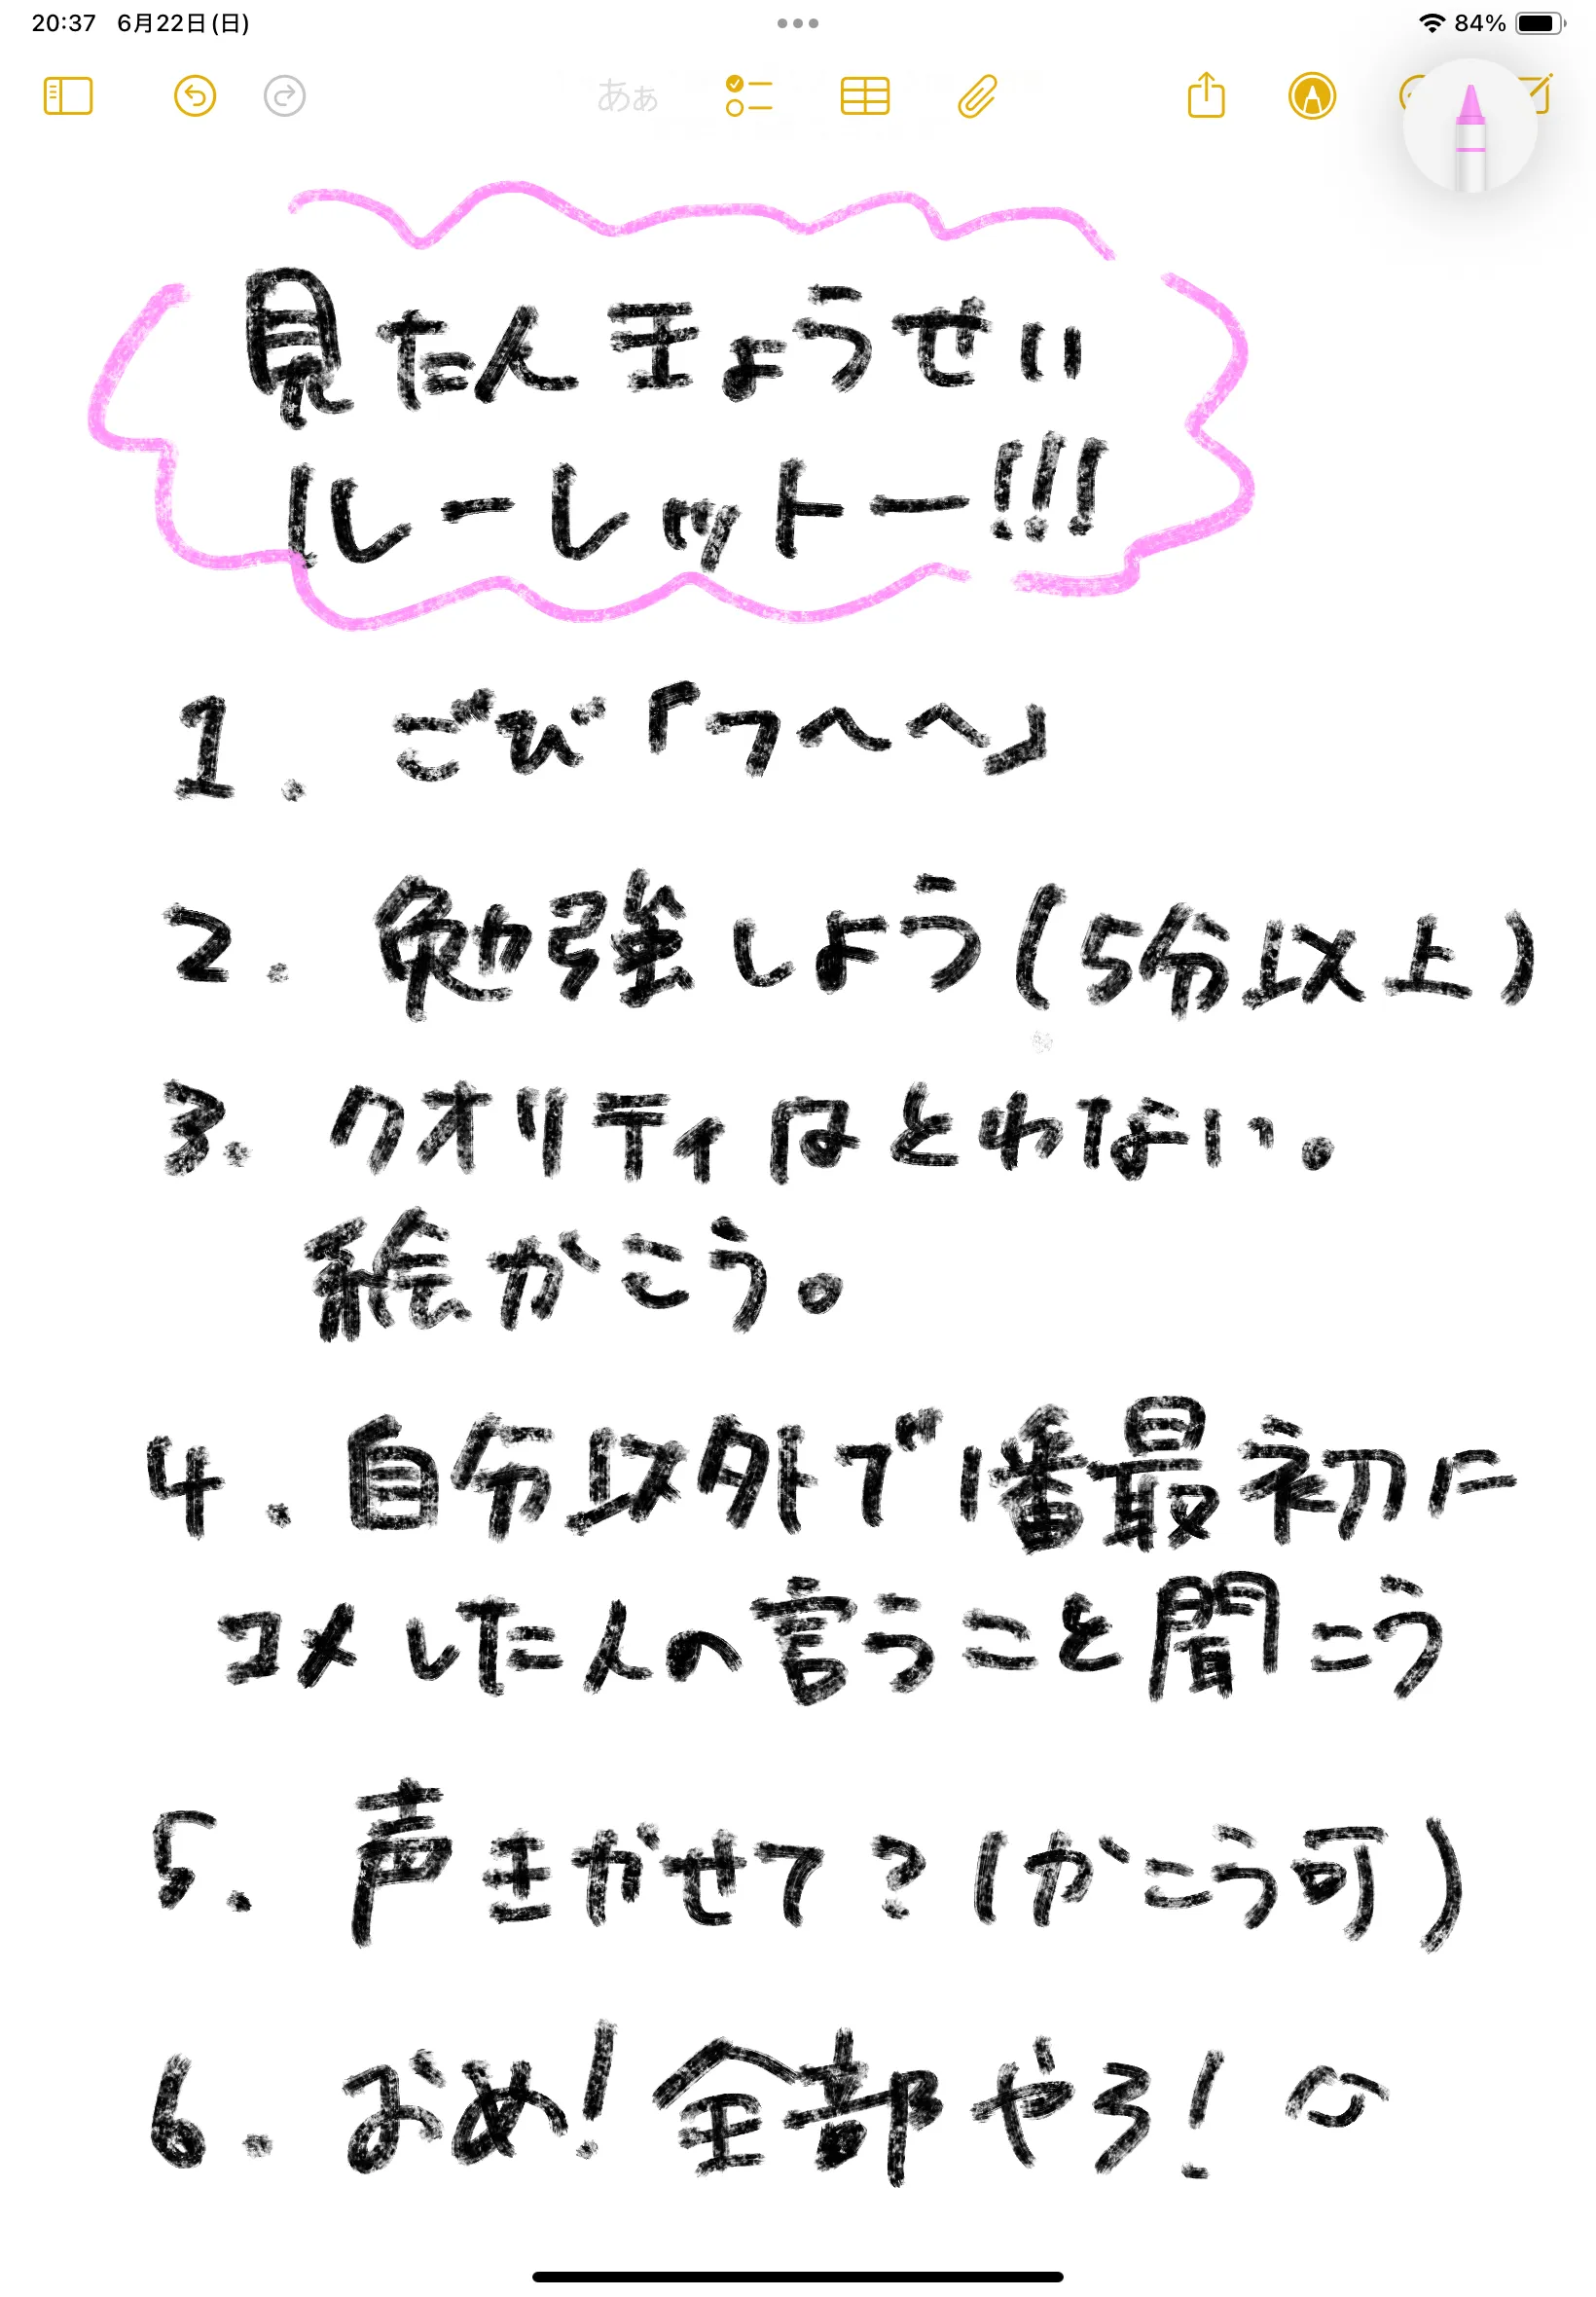 20:37 6月22日(日)
84%
あぁ
見たんきょうせい
ルーレットー!!!
1. ごび「フヘヘ」
2. 勉強しよう(5分以上)
3. クオリティはとわない。
絵かこう。
4. 自分以外で1番最初に
コメした人の言うこと聞こう
5. 声きかせて?(かこう可)
6. おめ!全部やろ!